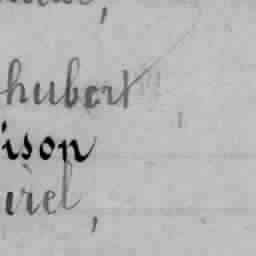 hubert
ison
irel,